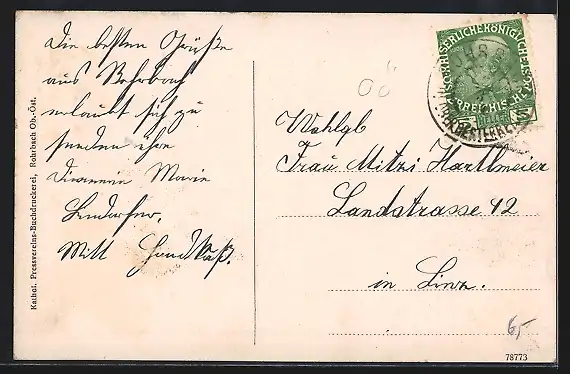 Die besten Grüße
aus Rohrbach
erlaubt sich zu
senden ihre
Dienerin Marie
Mitt Handkuß.
Kathol. Pressvereins-Buchdruckerei, Rohrbach Ob.-Öst.
OÖ
KAISERLICHE KÖNIGLICHE
HELLER
Wohlgb
Frau Mitzi Hartlmeier
Landstrasse 12
in Linz.
65
78773